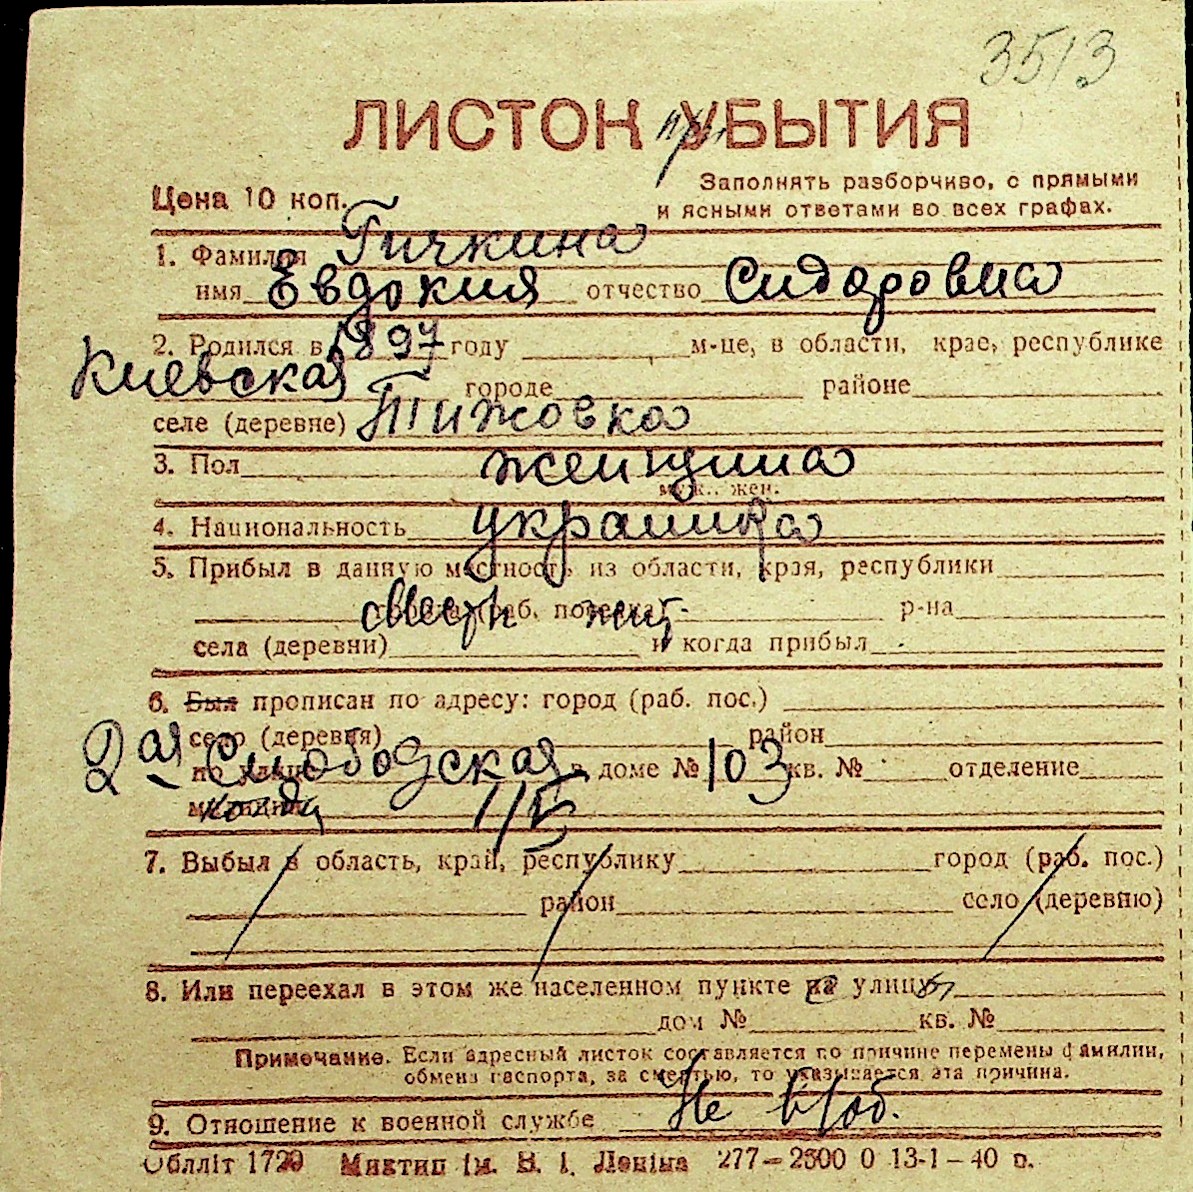 3513
ЛИСТОК при УБЫТИЯ
Заполнять разборчиво, с прямыми
Цена 10 коп.
и ясными ответами во всех графах.
1. Фамилия Гичкина
имя Евдокия отчество Сидоровна
2. Родился в 1897 году м-це, в области, крае, республике
Киевская городе районе
селе (деревне) Тижовка
3. Пол женщина
муж., жен.
4. Национальность украинка
5. Прибыл в данную местность из области, края, республики
города (раб. поселка) местн жит р-на
села (деревни) и когда прибыл
6. Был прописан по адресу: город (раб. пос.)
село (деревня) район
2ая Слободская по улице в доме № 103 кв. № отделение
милиции
7. Выбыл в область, край, республику город (раб. пос.)
район село (деревню)
8. Или переехал в этом же населенном пункте на улицу
дом № кв. №
Примечание. Если адресный листок составляется по причине перемены фамилии,
обмена паспорта, за смертью, то указывается эта причина.
9. Отношение к военной службе Не в/об.
Облліт 1729 Миктип ім. В. І. Леніна 277—2500 0 13-1—40 р.